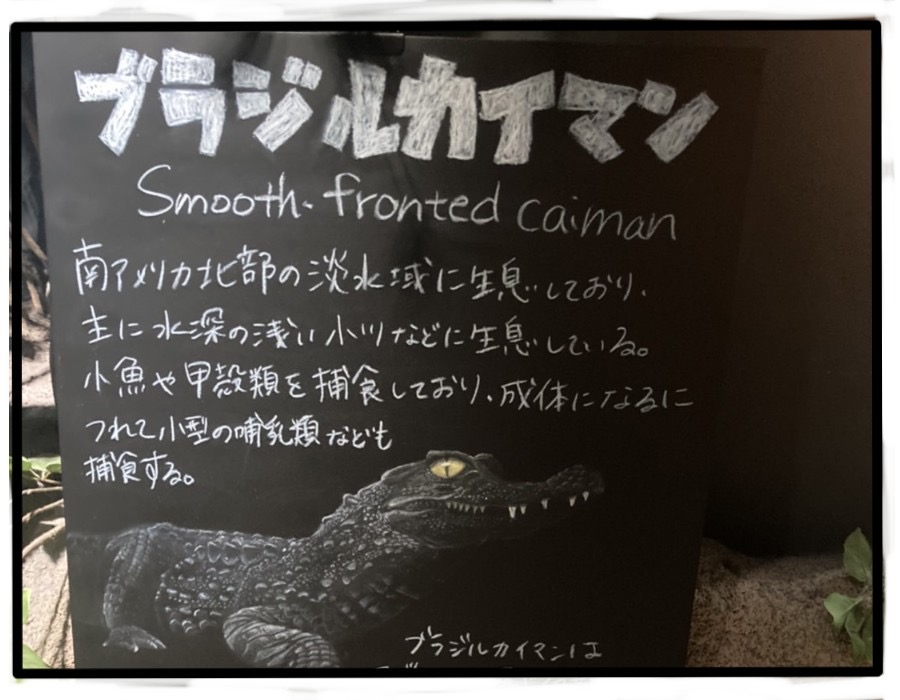 ブラジルカイマン
Smooth-fronted caiman
南アメリカ北部の淡水域に生息しており、
主に水深の浅い小川などに生息している。
小魚や甲殻類を捕食しており、成体になるに
つれて小型の哺乳類なども
捕食する。
ブラジルカイマンは